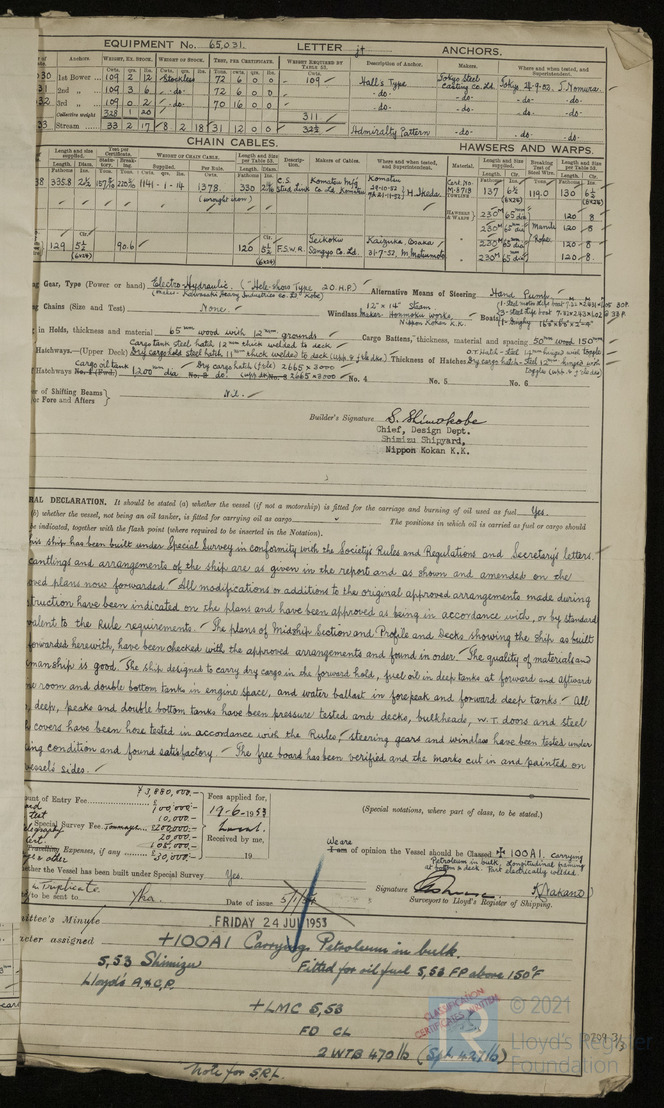 EQUIPMENT No. 65031. LETTER jt ANCHORS.
Anchors. WEIGHT, EX. STOCK. WEIGHT OF STOCK. TEST, PER CERTIFICATE. WEIGHT REQUIRED BY TABLE 53. Description of Anchor. Makers. Where and when tested, and Superintendent.
Cwts. qrs. lbs. Cwts. qrs. lbs. Tons. cwts. qrs. lbs. Cwts.
30 1st Bower ... 109 2 12 Stockless 72 6 0 0 109 Hall's Type Tokyo Steel Casting Co. Ltd. Tokyo 24-9-52. J. Nomura.
31 2nd " ... 109 3 6 do 72 6 0 0 -do- -do- -do- -do-
32 3rd " ... 109 0 2 do 70 16 0 0 -do- -do- -do- -do-
Collective weight 328 1 20 311
33 Stream ... 33 2 17 8 2 18 31 12 0 0 32½ Admiralty Pattern -do- -do- -do-
CHAIN CABLES. HAWSERS AND WARPS.
Length and size supplied. Test per Certificate. WEIGHT OF CHAIN CABLE. Length and Size per Table 53. Description. Makers of Cables. Where and when tested, and Superintendent. Material. Length and size supplied. Breaking Test of Steel Wire. Length and Size per Table 53.
Length. Diam. Supplied. Per Rule. Length. Diam.
38 335.8 1141-1-14 1378. (wrought iron) 330 C.S. Stud link Komatsu Mfg Co Ltd. Komatsu Komatsu H. Ikeda. TOWLING 137 6½ (6x24) 119.0 130 6½
HAWSERS & WARPS 230M 65 dia Manila Rope 120 8
" 230M 65 dia 120 8
" 230M 65 dia 120 8
" 230M 65 dia 120 8
129 5½ (6x24) 90.6 120 5½ (6x24) F.S.W.R. Teikoku Sangyo Co. Ltd. Kaizuka, Osaka 31-7-52. M. Matsumoto
Gear, Type (Power or hand) Electro-Hydraulic. ("Hele-Shaw Type 20 H.P.) Alternative Means of Steering Hand Pump
(Maker- Kawasaki Heavy Industries Co. Ltd Kobe)
Chains (Size and Test) None. Windlass 12" x 14" Steam Maker- Honmoku works, Nippon Kokan K.K. Boats
in Holds, thickness and material 65mm wood with 12mm grounds Cargo Battens, thickness, material and spacing 50mm wood 150mm
Cargo tank steel hatch 12mm thick welded to deck
Hatchways.—(Upper Deck) Dry cargo hold steel hatch 11mm thick welded to deck Thickness of Hatches
Cargo oil tank Dry cargo hatch
Hatchways 1200mm dia do 2665 x 3000 No. 4 No. 5 No. 6
of Shifting Beams or Fore and Afters Nil.
Builder's Signature S. Shimokobe
Chief, Design Dept.
Shimizu Shipyard,
Nippon Kokan K.K.
RAL DECLARATION. It should be stated (a) whether the vessel (if not a motorship) is fitted for the carriage and burning of oil used as fuel Yes.
(b) whether the vessel, not being an oil tanker, is fitted for carrying oil as cargo The positions in which oil is carried as fuel or cargo should
be indicated, together with the flash point (where required to be inserted in the Notation).
his ship has been built under Special Survey in conformity with the Society's Rules and Regulations and Secretary's letters.
cantlings and arrangements of the ship are as given in the report and as shown and amended on the
oved plans now forwarded. All modifications or addition to the original approved arrangements made during
truction have been indicated on the plans and have been approved as being in accordance with, or by standard
valent to the Rule requirements. The plans of Midship Section and Profile and Decks showing the ship as built
forwarded herewith, have been checked with the approved arrangements and found in order. The quality of materials and
manship is good. The ship designed to carry dry cargo in the forward hold, fuel oil in deep tanks at forward and aftward
ne room and double bottom tanks in engine space, and water ballast in forepeak and forward deep tanks. All
, deep, peake and double bottom tanks have been pressure tested and decks, bulkheads, w.T. doors and steel
covers have been hose tested in accordance with the Rules, steering gears and windlass have been tested under
ing condition and found satisfactory. The free board has been verified and the marks cut in and painted on
vessel's sides.
ount of Entry Fee ¥3,880,000.- Fees applied for,
100,000.- 19-6-1953
10,000.-
Special Survey Fee £200,000.- Received by me,
20,000.-
105,000.-
Travelling Expenses, if any £30,000.- 19
(Special notations, where part of class, to be stated.)
We are
I am of opinion the Vessel should be Classed ✠ 100A1. carrying
Petroleum in bulk, longitudinal framing
at bottom & deck. Part electrically welded.
hether the Vessel has been built under Special Survey Yes.
in Triplicate
to be sent to Yka. Date of issue
Signature K. Nakano
Surveyor to Lloyd's Register of Shipping.
ittee's Minute FRIDAY 24 JUL 1953
acter assigned +100A1 Carrying Petroleum in bulk.
5,53 Shimizu Fitted for oil fuel 5,53 FP above 150°F
Lloyd's A.&C.P.
+LMC 5,53
FD CL
2 WTB 470 lb (Spt. 427 lb)
CLASSIFICATION CERTIFICATES WRITTEN
Note for S.R.L.
© 2021
Lloyd's Register
Foundation